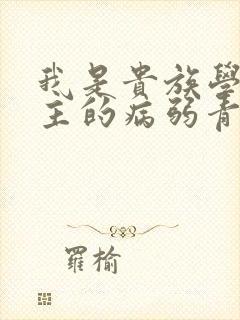 我是貴族學
主的病弱青
羅榆